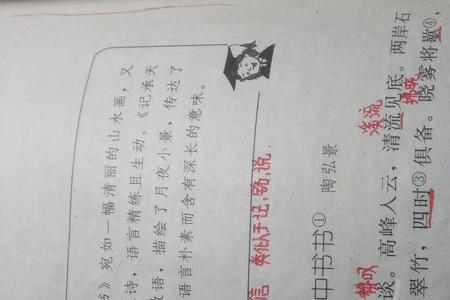 书》宛如一幅清丽的山水画，又
诗，语言精练且生动。《记承天
语，描绘了月夜小景，传达了
语言朴素而含有深长的意味。
信 类似于记,铭,说.
中书书①
陶弘景
溪流
谈。高峰入云，清流见底。两岸石
翠竹，四时③俱备。晓雾将歇④